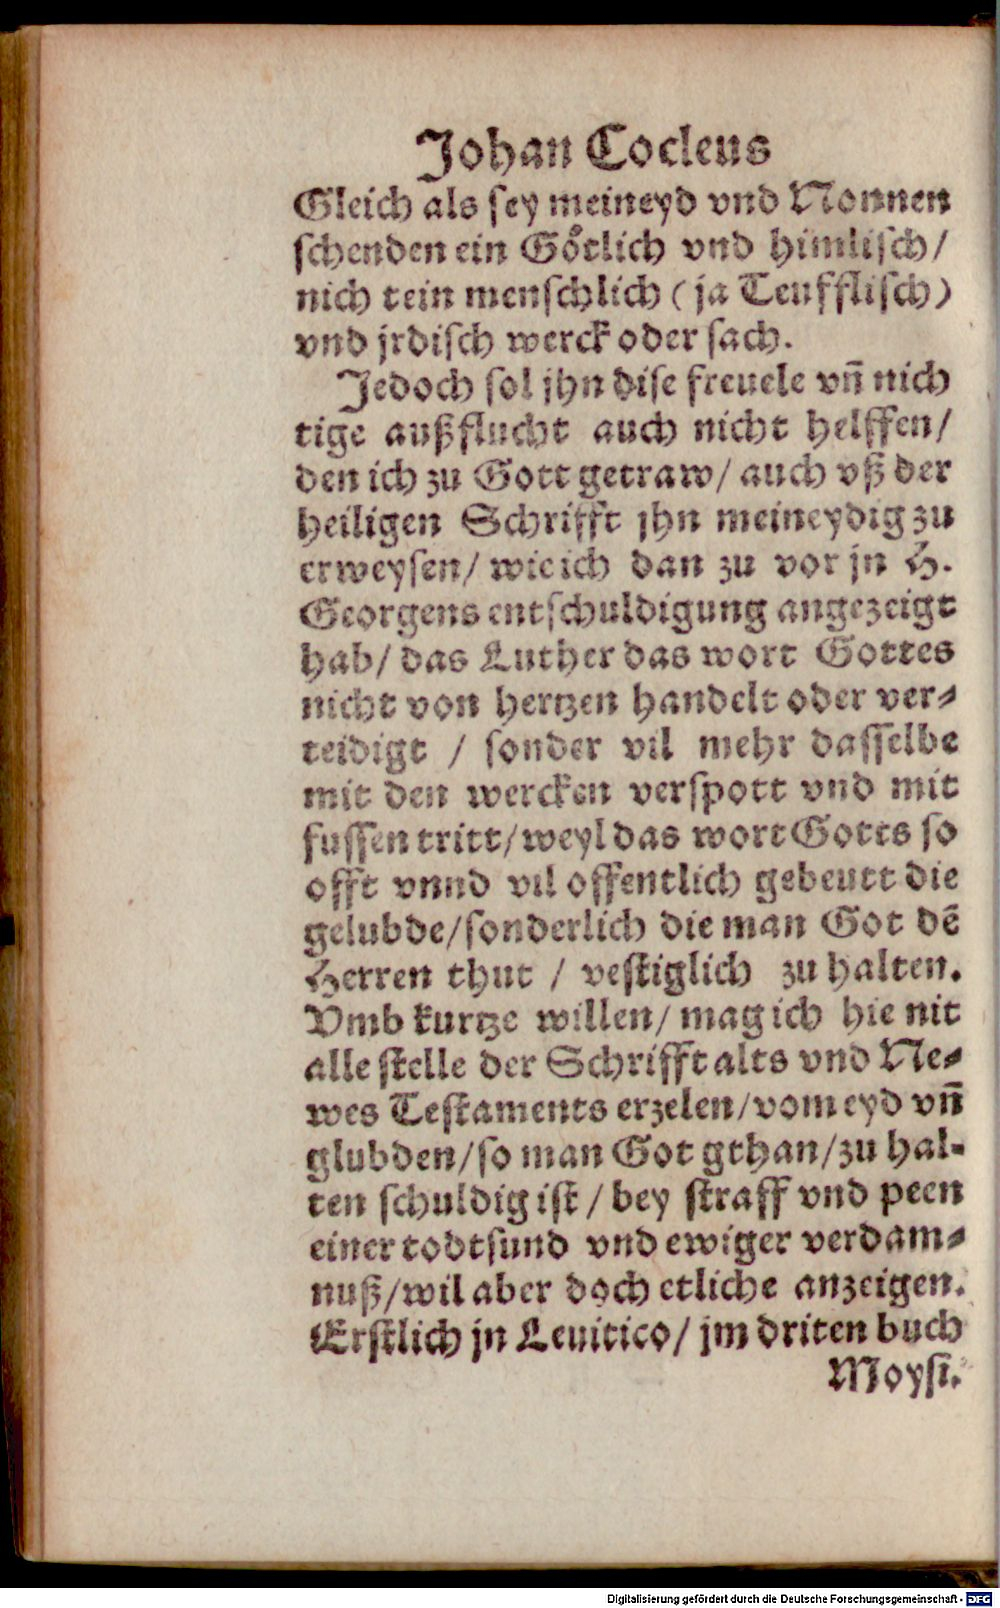 Johan Cocleus
Gleich als sey meineyd vnd Nonnen
schenden ein Goͤtlich vnd himlisch/
nich tein menschlich (ja Teufflisch)
vnd jrdisch werck oder sach.
Jedoch sol jhn dise freuele vñ nich
tige außflucht auch nicht helffen/
den ich zu Gott getraw/ auch vß der
heiligen Schrifft jhn meineydig zu
erweysen/ wie ich dan zu vor jn H.
Georgens entschuldigung angezeigt
hab/ das Luther das wort Gottes
nicht von hertzen handelt oder ver⸗
teidigt / sonder vil mehr dasselbe
mit den wercken verspott vnd mit
fussen tritt/ weyl das wort Gotts so
offt vnnd vil offentlich gebeutt die
gelubde/sonderlich die man Got dẽ
Herren thut / vestiglich zu halten.
Vmb kurtze willen/ mag ich hie nit
alle stelle der Schrifft alts vnd Ne⸗
wes Testaments erzelen/vom eyd vñ
glubden/so man Got gthan/zu hal-
ten schuldig ist / bey straff vnd peen
einer todtsund vnd ewiger verdam⸗
nuß/wil aber doch etliche anzeigen.
Erstlich jn Leuitico/ jm driten buch
Moysi.
Digitalisierung gefördert durch die Deutsche Forschungsgemeinschaft - DFG